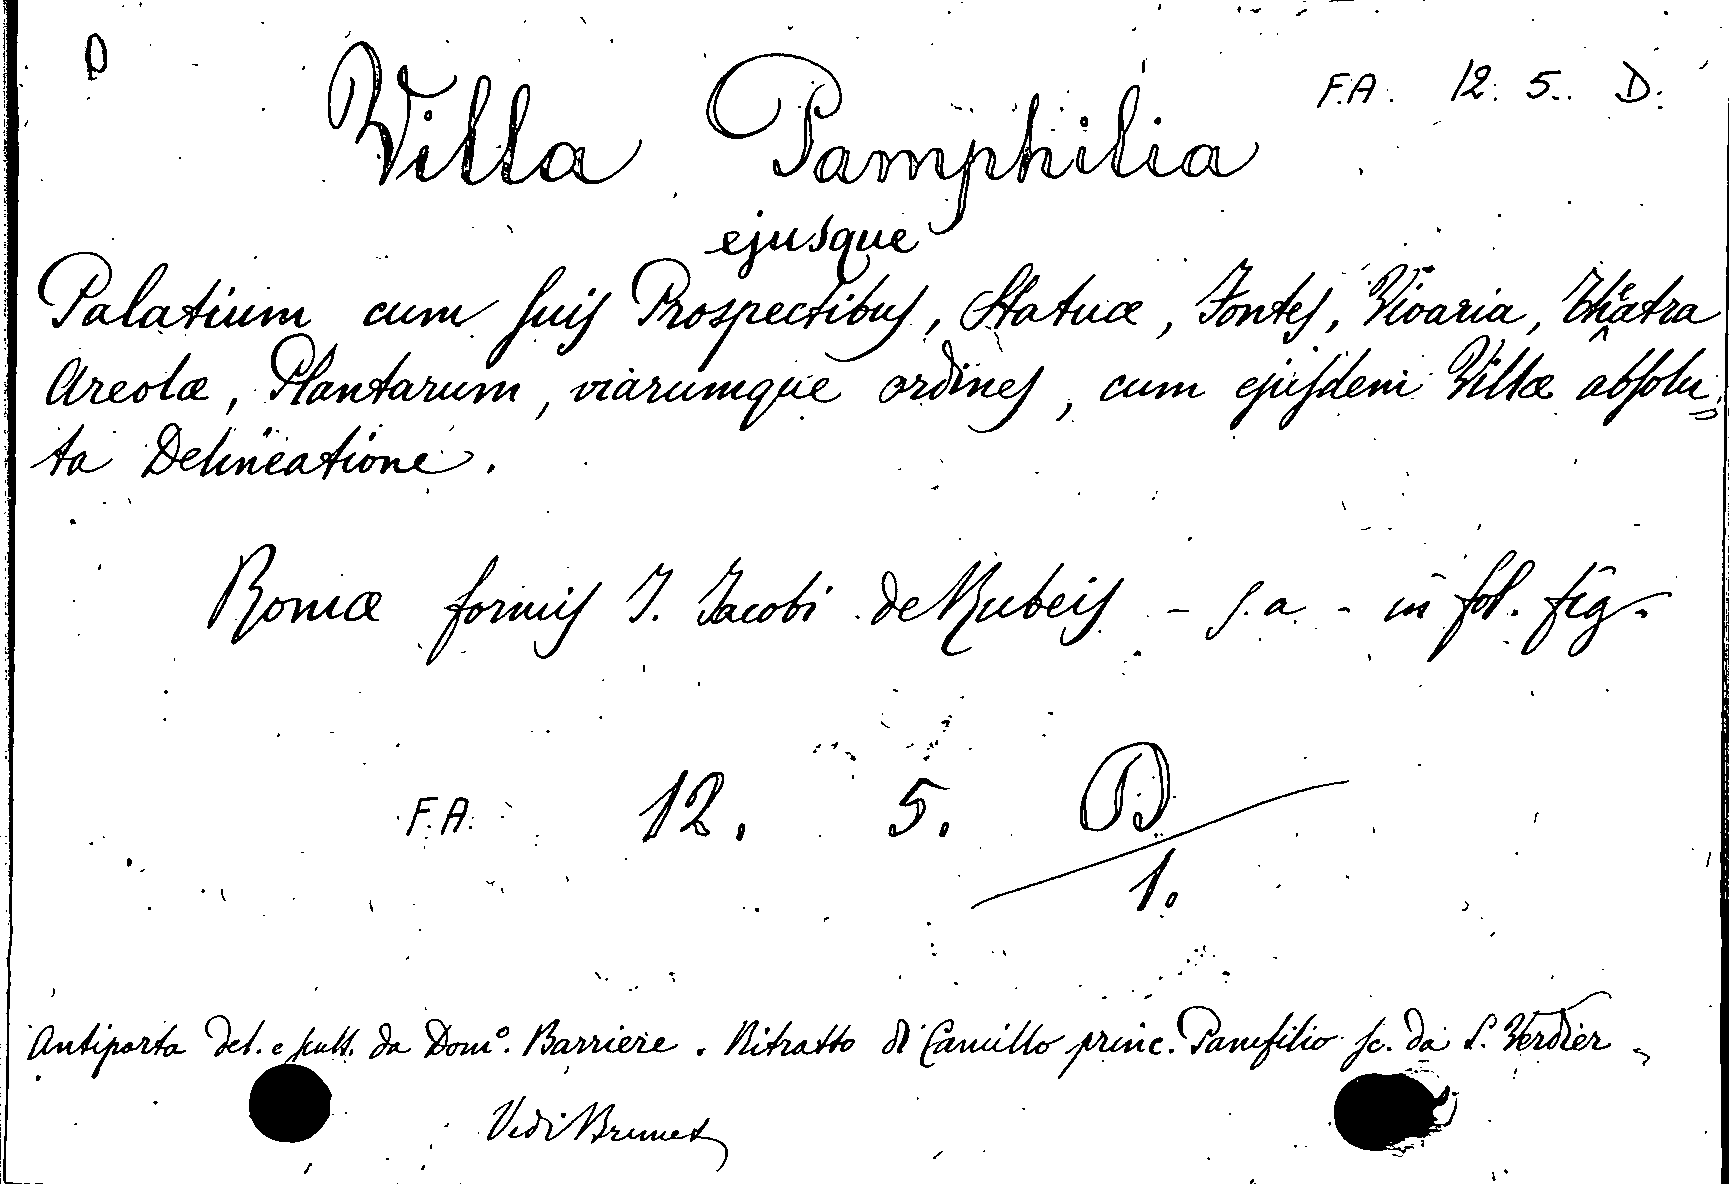 D
F.A. 12. 5. D.
Villa Pamphilia
ejusque
Palatium cum suis Prospectibus, Statuæ, Fontes, Vivaria, Theatra
Areolæ, Plantarum, viarumque ordines, cum ejusdem Villæ absolu=
ta Delineatione.
Romæ formis J. Jacobi de Rubeis - s.a. - in fol. fig.
F.A. 12. 5. D
1.
Antiporta del. e scult. da Dom.º Barriere. Ritratto di Camillo princ. Pamfilio sc. da S. Verdier
Vedi Brunet